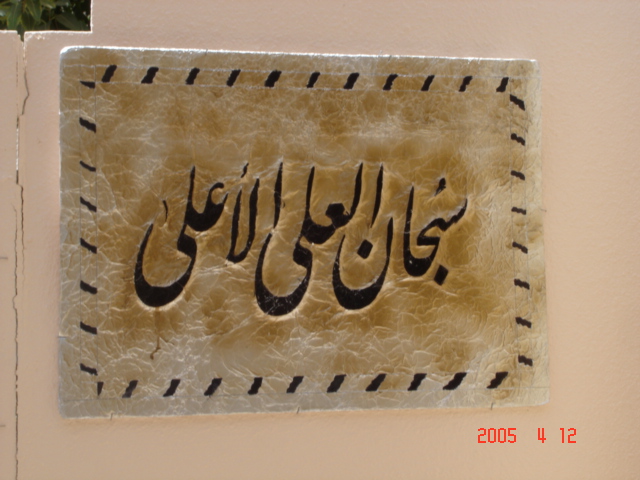 سبحان العلي الأعلى
2005 4 12